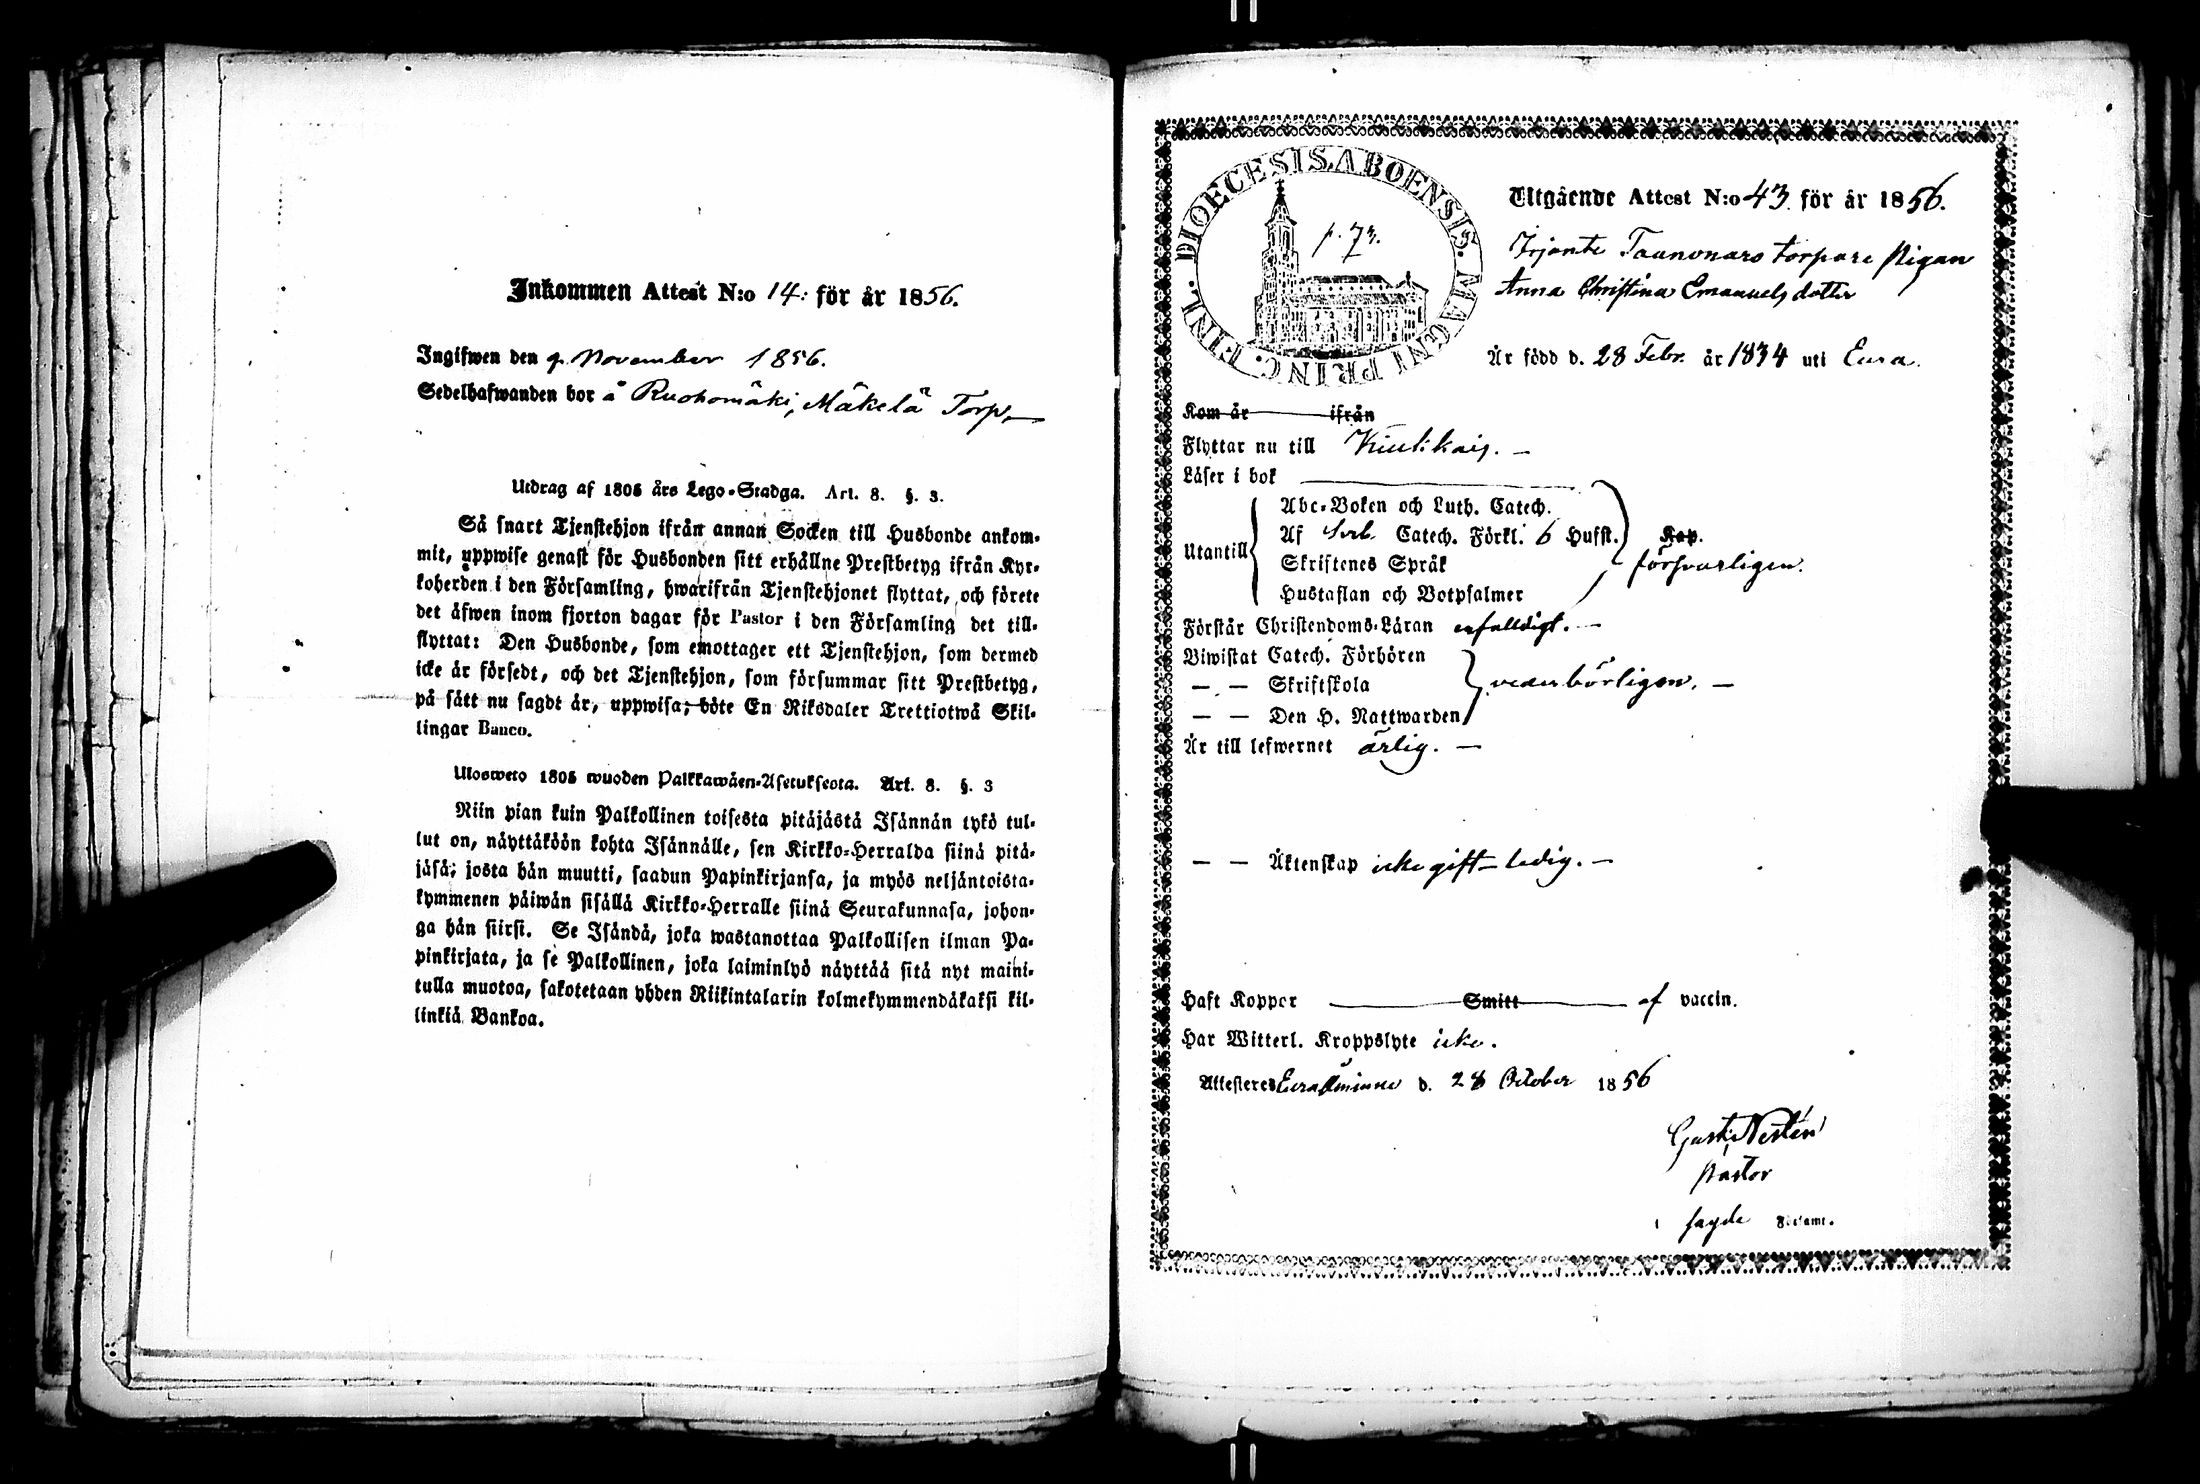 Inkommen Attest N:o 14: för år 1856.
Ingifwen den 9 November 1856.
Sedelhafwanden bor å Ruohomäki, Mäkelä Torp,
Utdrag af 1805 års Lego-Stadga. Art. 8. §. 3.
Så snart Tjenstehjon ifrån annan Socken till Husbonde ankom-
mit, uppwise genast för Husbonden sitt erhållne Prestbetyg ifrån Kyr-
koherden i den Församling, hwarifrån Tjenstehjonet flyttat, och förete
det äfwen inom fjorton dagar för Pastor i den Församling det till-
flyttat: Den Husbonde, som emottager ett Tjenstehjon, som dermed
icke är försedt, och det Tjenstehjon, som försummar sitt Prestbetyg,
på sätt nu sagdt är, uppwisa; böte En Riksdaler Trettiotwå Skil-
lingar Banco.
Ulosweto 1805 wuoden Palkkawäen-Asetuksesta. Art. 8. §. 3
Niin pian kuin Palkollinen toisesta pitäjästä Isännän tykö tul-
lut on, näyttäköön kohta Isännälle, sen Kirkko-Herralda siinä pitä-
jäsä; josta hän muutti, saadun Papinkirjansa, ja myös neljäntoista-
kymmenen päiwän sisällä Kirkko-Herralle siinä Seurakunnasa, johon-
ga hän siirsi. Se Isändä, joka wastanottaa Palkollisen ilman Pa-
pinkirjata, ja se Palkollinen, joka laiminlyö näyttää sitä nyt maini-
tulla muotoa, sakotetaan yhden Riikintalarin kolmekymmendäkaksi kil-
linkiä Bankoa.
DIOECESIS ABOENSIS. MAGNI PRINC. FINL.
p. 73.
Utgående Attest N:o 43 för år 1856.
Irjante Taanonars torpare Pigan
Anna Christina Emanuels dotter
Är född d. 28 Febr. år 1834 uti Eura.
Kom år ifrån
Flyttar nu till Kiukkais.
Läser i bok
Utantill
Abc-Boken och Luth. Catech.
Af Svb. Catech. Förkl. 6 Hufst.
Skriftenes Språk
Hustaflan och Botpsalmer
Kap.
försvarligen.
Förstår Christendoms-Läran enfaldigt.
Biwistat Catech. Förhören
— — Skriftskola
— — Den H. Nattwarden
vederbörligen. —
Är till lefwernet ärlig. —
— — Äktenskap icke gift – ledig. —
Haft Koppor Smitt af vaccin.
Har Witterl. Kroppslyte icke.
Attesteres Euraåminne d. 28 October 1856
Gust: Nestén
Pastor
i sagde Församl.